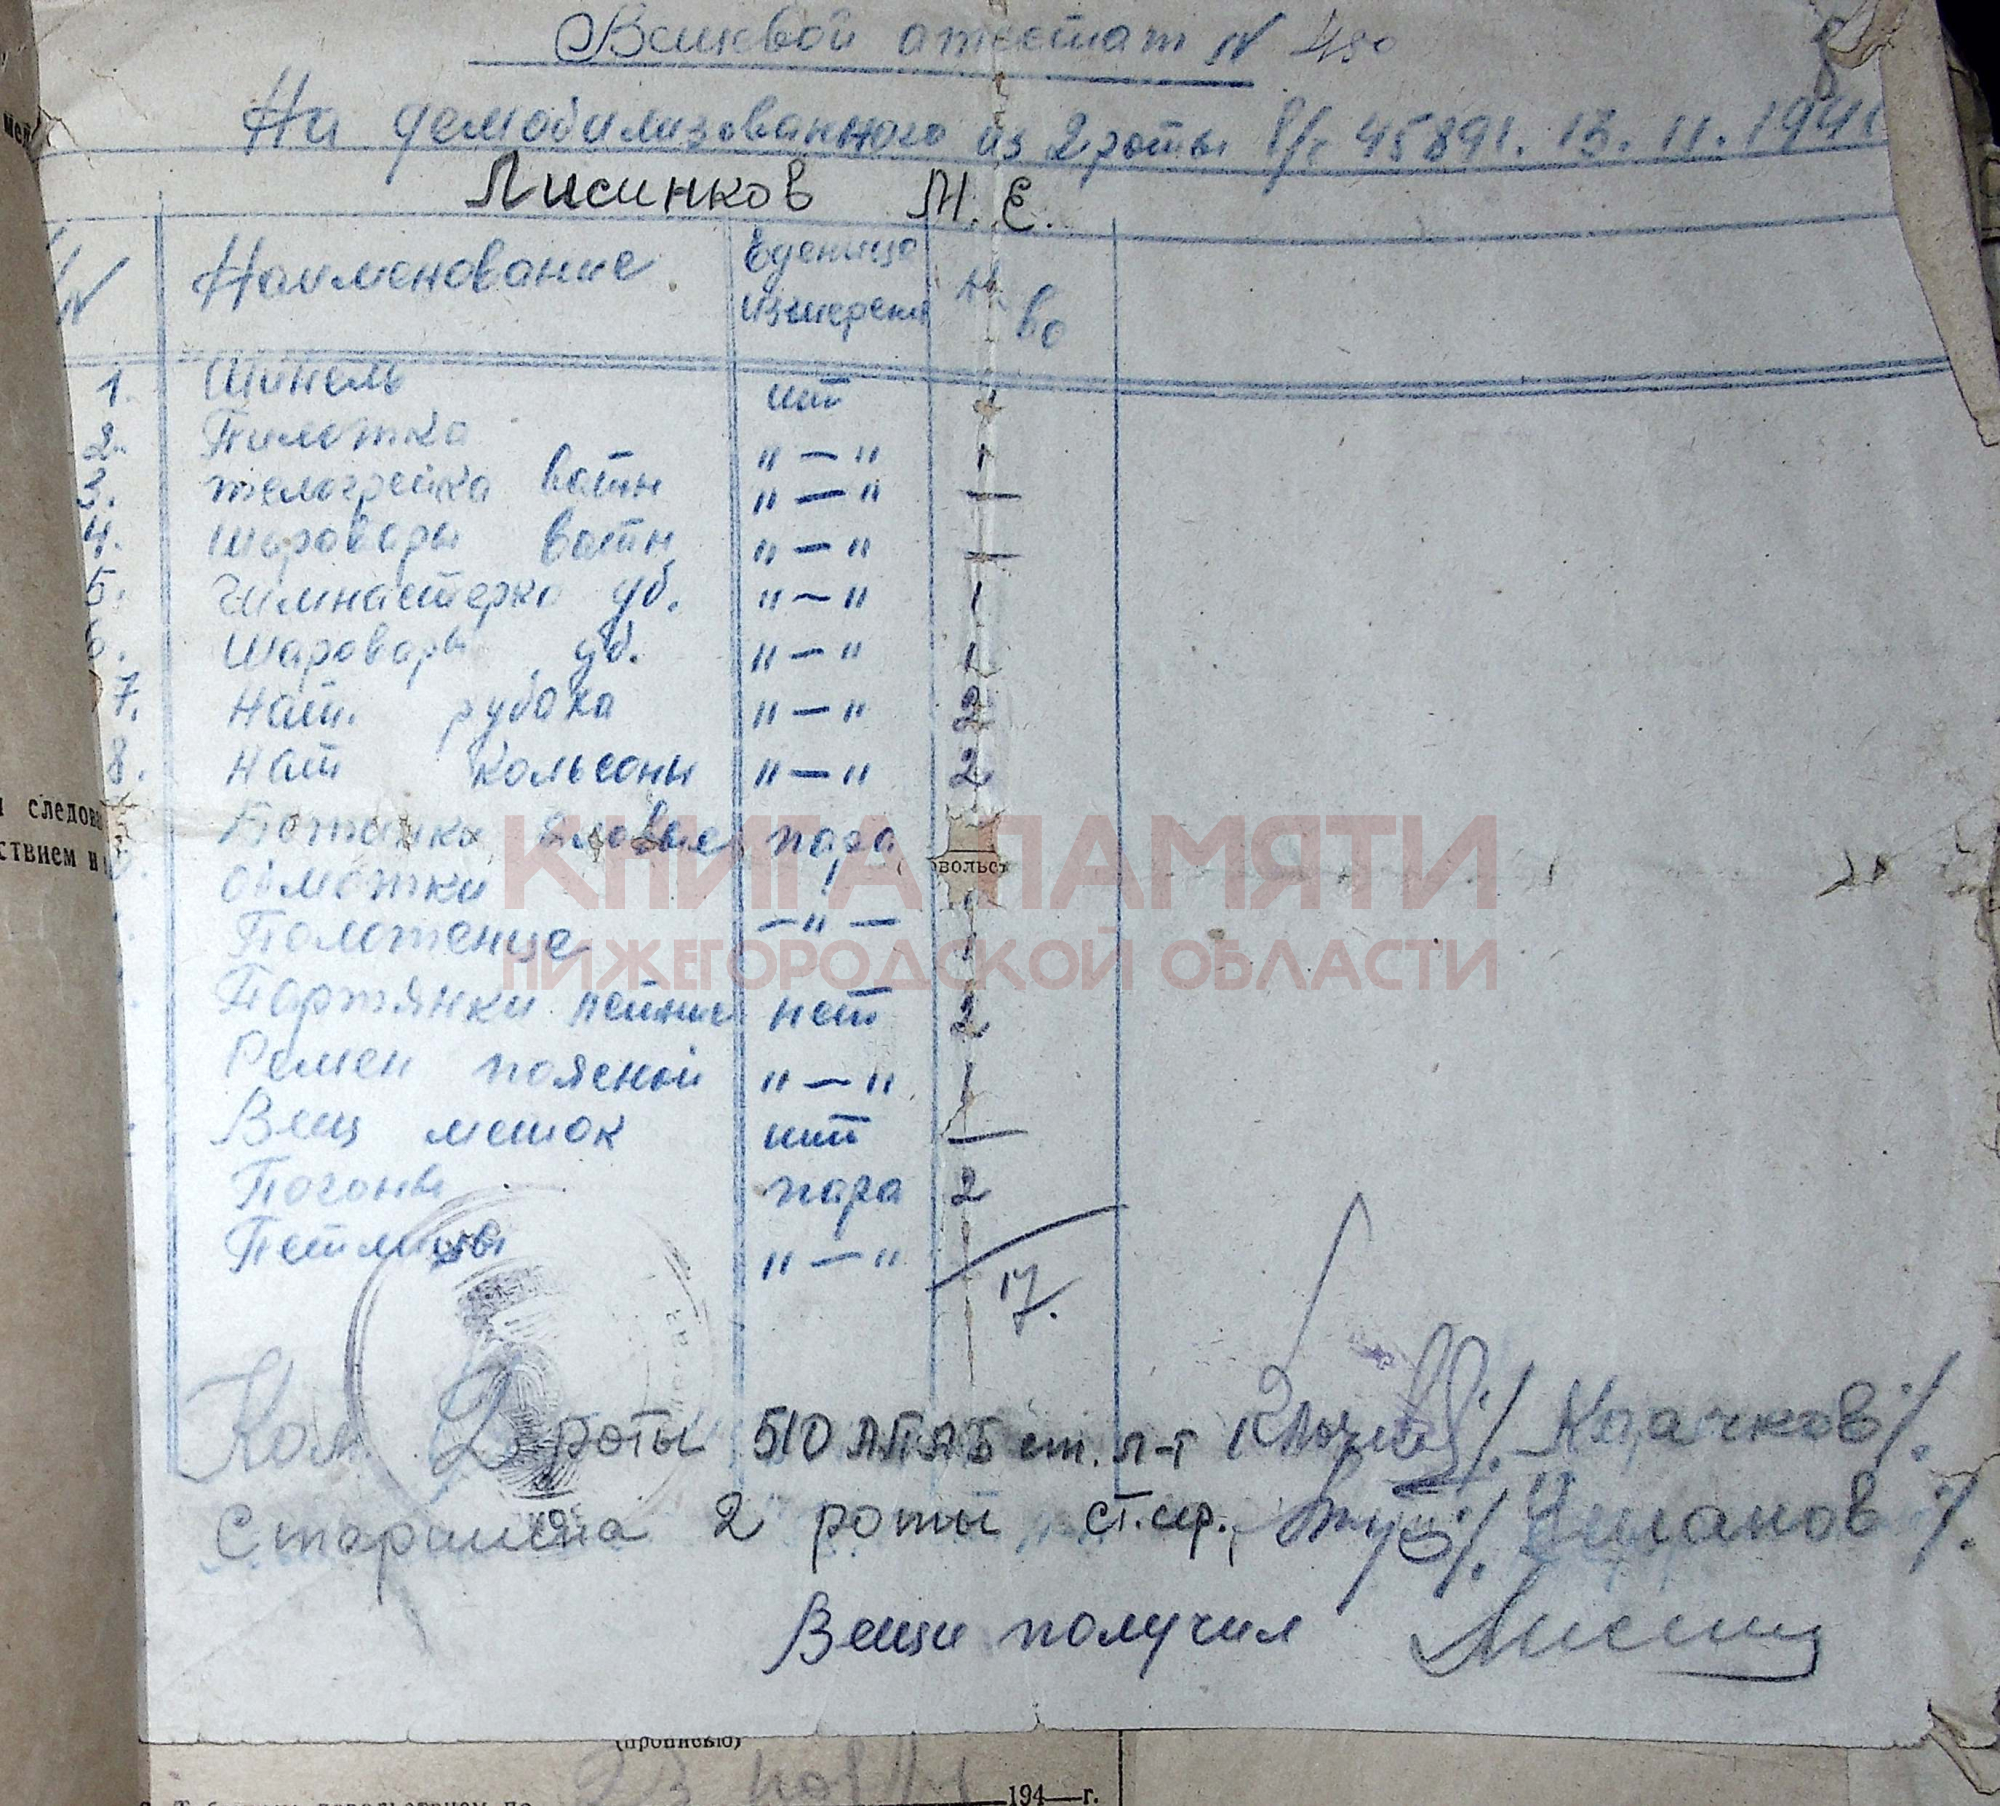 Вещевой аттестат N 480
На демобилизованного из 2 роты В/с 45891. 13. 11. 194
Лисинков М. Е.
N Наименование Еденица измерени К-во
1. Шинель шт 1
2. Пилотка " — " 1
3. телогрейка ватн " — " —
4. шаровары ватн " — " —
5. гимнастерка хб. " — " 1
6. Шаровары хб. " — " 1
7. Нат. рубаха " — " 2
8. Нат кольсоны " — " 2
Ботинки яловые пара
обмотки "
Полотенце — " — 1
Портянки летние шт 2
Ремен поясной " — " 1
Вещ мешок шт —
Погоны пара 2
Петлицы " — "
17.
Ком 2 роты 510 АПАБ ст. л-т /Крачков/.
Старшина 2 роты ст. сер., /Чиланов/.
Вещи получил
КНИГА ПАМЯТИ
НИЖЕГОРОДСКОЙ ОБЛАСТИ
следова
ствием и
овольс
(прописью)
194—г.